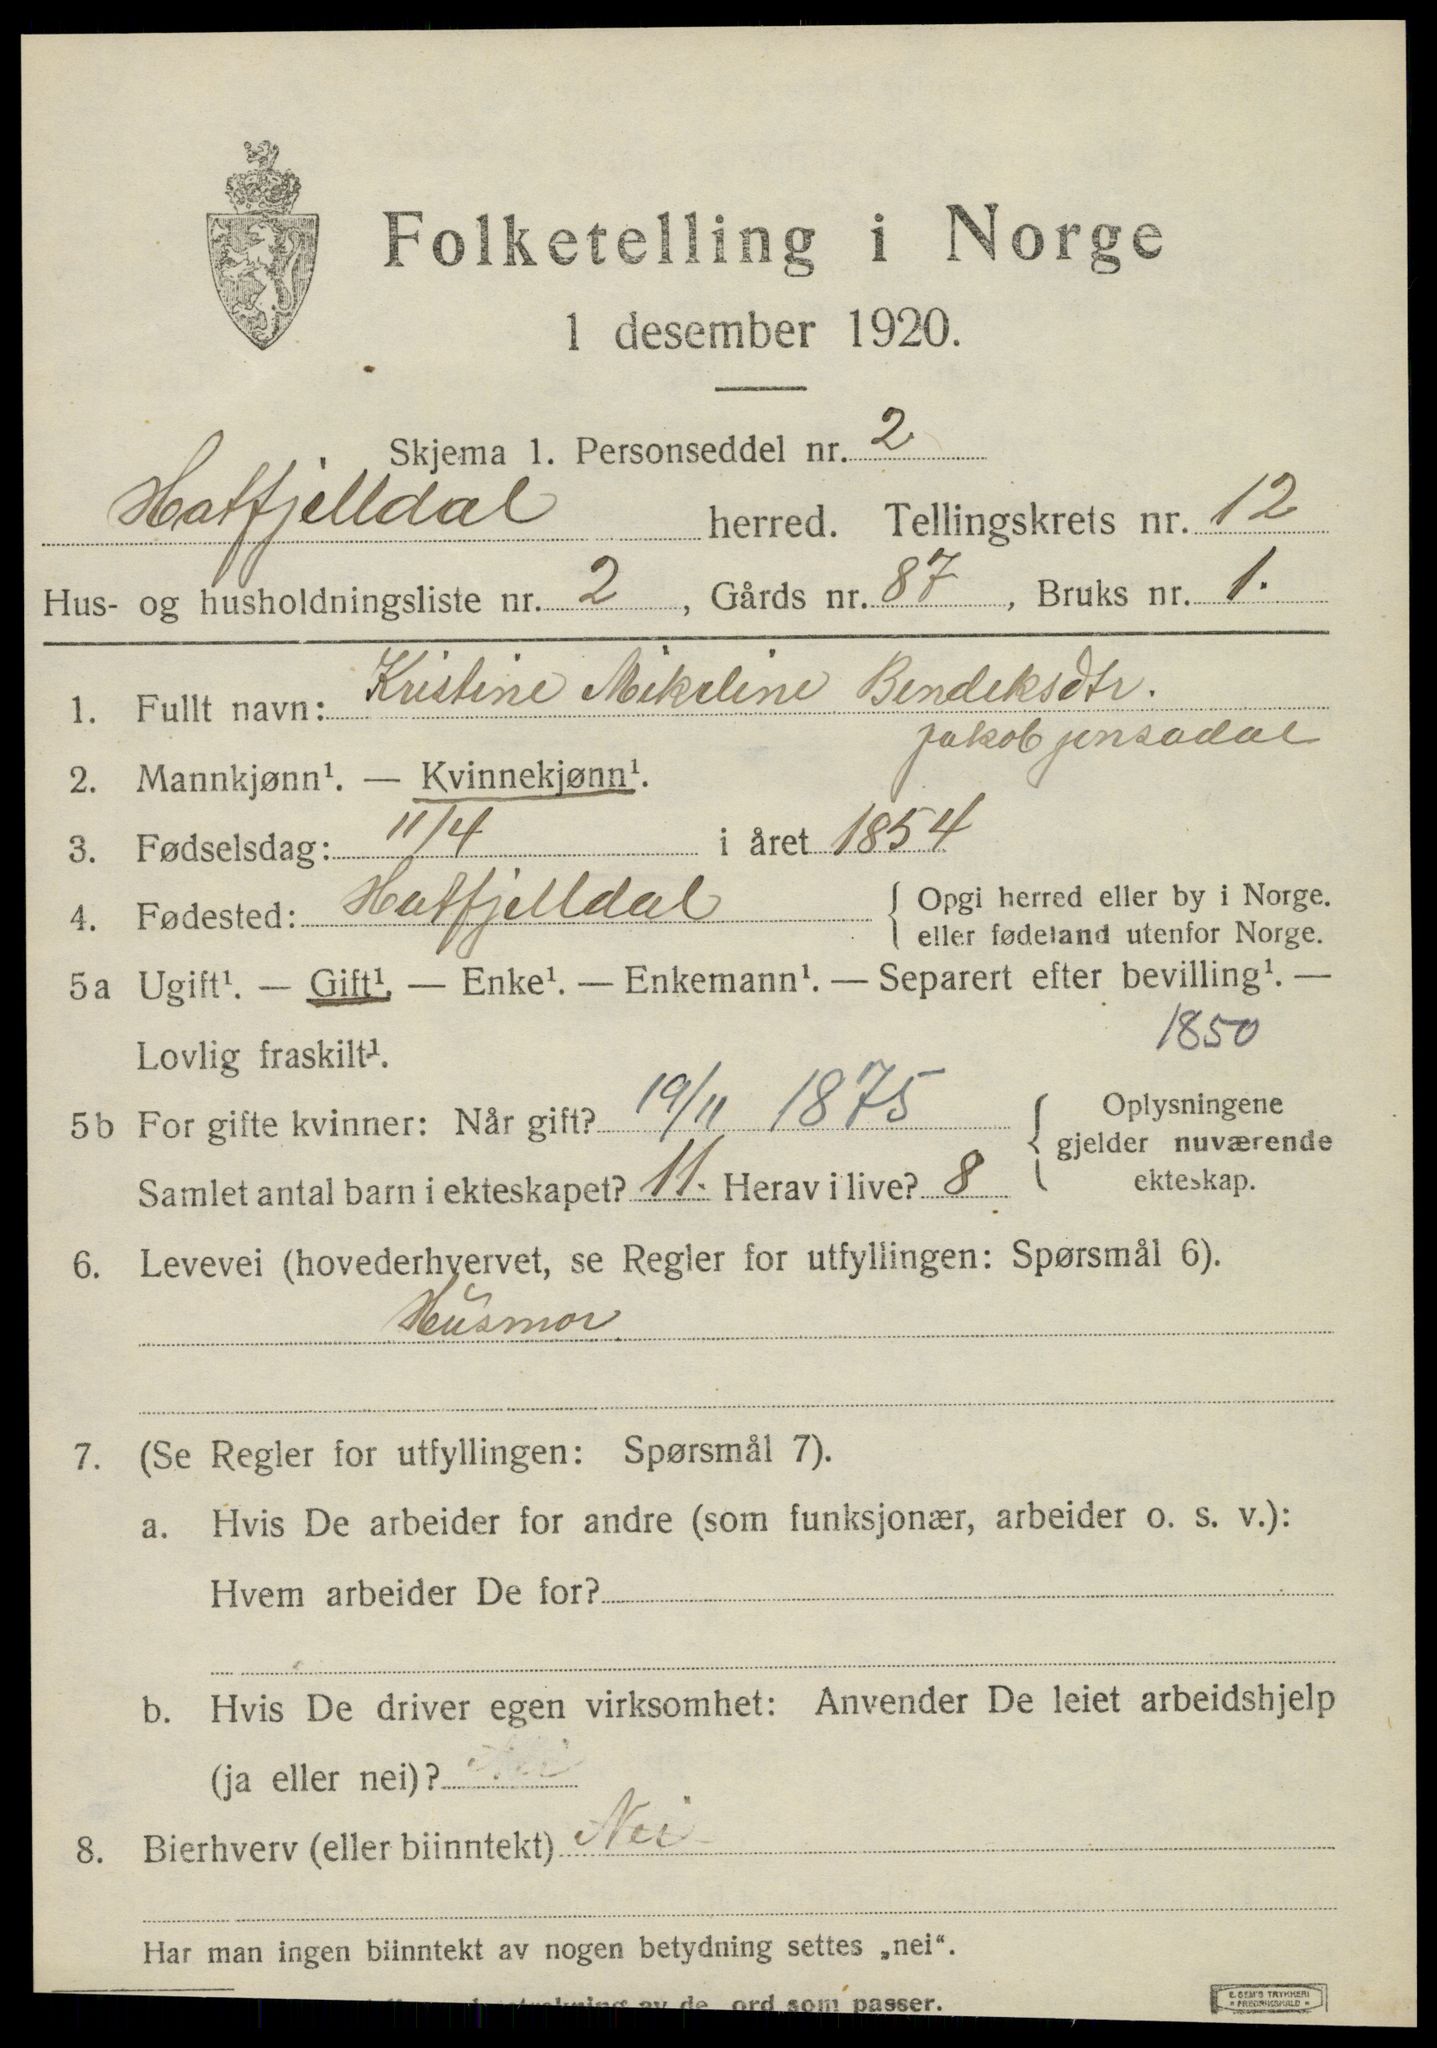 Folketelling i Norge
1 desember 1920.
Skjema 1. Personseddel nr. 2
Hatfjelldal herred. Tellingskrets nr. 12
Hus- og husholdningsliste nr. 2, Gårds nr. 87, Bruks nr. 1.
1. Fullt navn: Kristine Mikeline Bendeksdtr.
Jakobjensadal
2. Mannkjønn¹. — Kvinnekjønn¹.
3. Fødselsdag: 11/4 i året 1854
4. Fødested: Hatfjelldal { Opgi herred eller by i Norge.
eller fødeland utenfor Norge.
5a Ugift¹. — Gift¹. — Enke¹. — Enkemann¹. — Separert efter bevilling¹. —
Lovlig fraskilt¹. 1850
5b For gifte kvinner: Når gift? 19/11 1875 { Oplysningene
gjelder nuværende
Samlet antal barn i ekteskapet? 11. Herav i live? 8 ekteskap.
6. Levevei (hovederhvervet, se Regler for utfyllingen: Spørsmål 6).
Husmor
7. (Se Regler for utfyllingen: Spørsmål 7).
a. Hvis De arbeider for andre (som funksjonær, arbeider o. s. v.):
Hvem arbeider De for?
b. Hvis De driver egen virksomhet: Anvender De leiet arbeidshjelp
(ja eller nei)? Nei
8. Bierhverv (eller biinntekt) Nei
Har man ingen biinntekt av nogen betydning settes „nei“.
av de ord som passer.
E. SEM'S TRYKKERI
FREDRIKSHALD